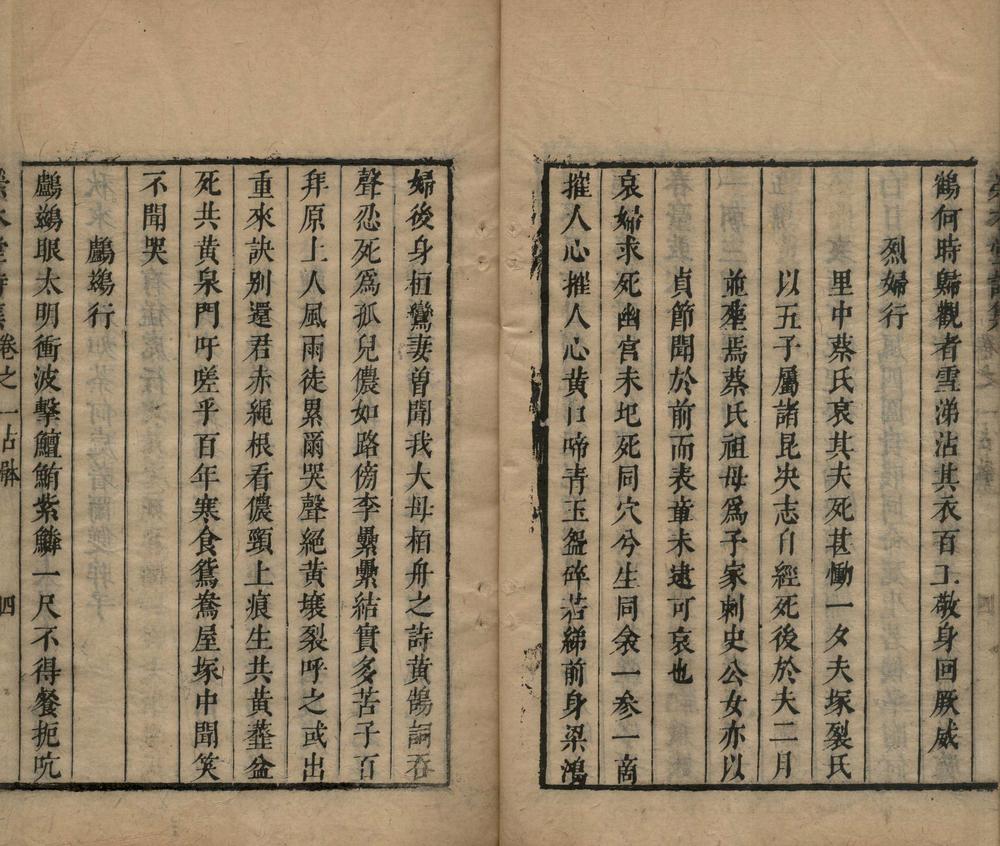 鶴何時歸觀者雪涕沾其衣百工敬身回厥威
烈婦行
里中蔡氏哀其夫死甚慟一夕夫塚裂氏
以五子屬諸昆決志自經死後於夫二月
並塟焉蔡氏祖母爲子家刺史公女亦以
貞節聞於前而表章未逮可哀也
哀婦求死幽宮未圯死同穴兮生同衾一參一商
摧人心摧人心黃口啼青玉盌碎若綈前身梁鴻
婦後身桓鸞妻曾聞我大母栢舟之詩黃鵠詞吞
聲忍死爲孤兒儂如路傍李纍纍結實多苦子百
拜原上人風雨徒累爾哭聲絕黃壤裂呼之或出
重來訣別還君赤繩根看儂頸上痕生共黃虀盆
死共黃泉門吁嗟乎百年寒食鴛鴦屋塚中聞笑
不聞哭
鸕鷀行
鸕鷀眼太明衝波擊鱣鮪紫鱗一尺不得餐扼吭
卷之一古體
四